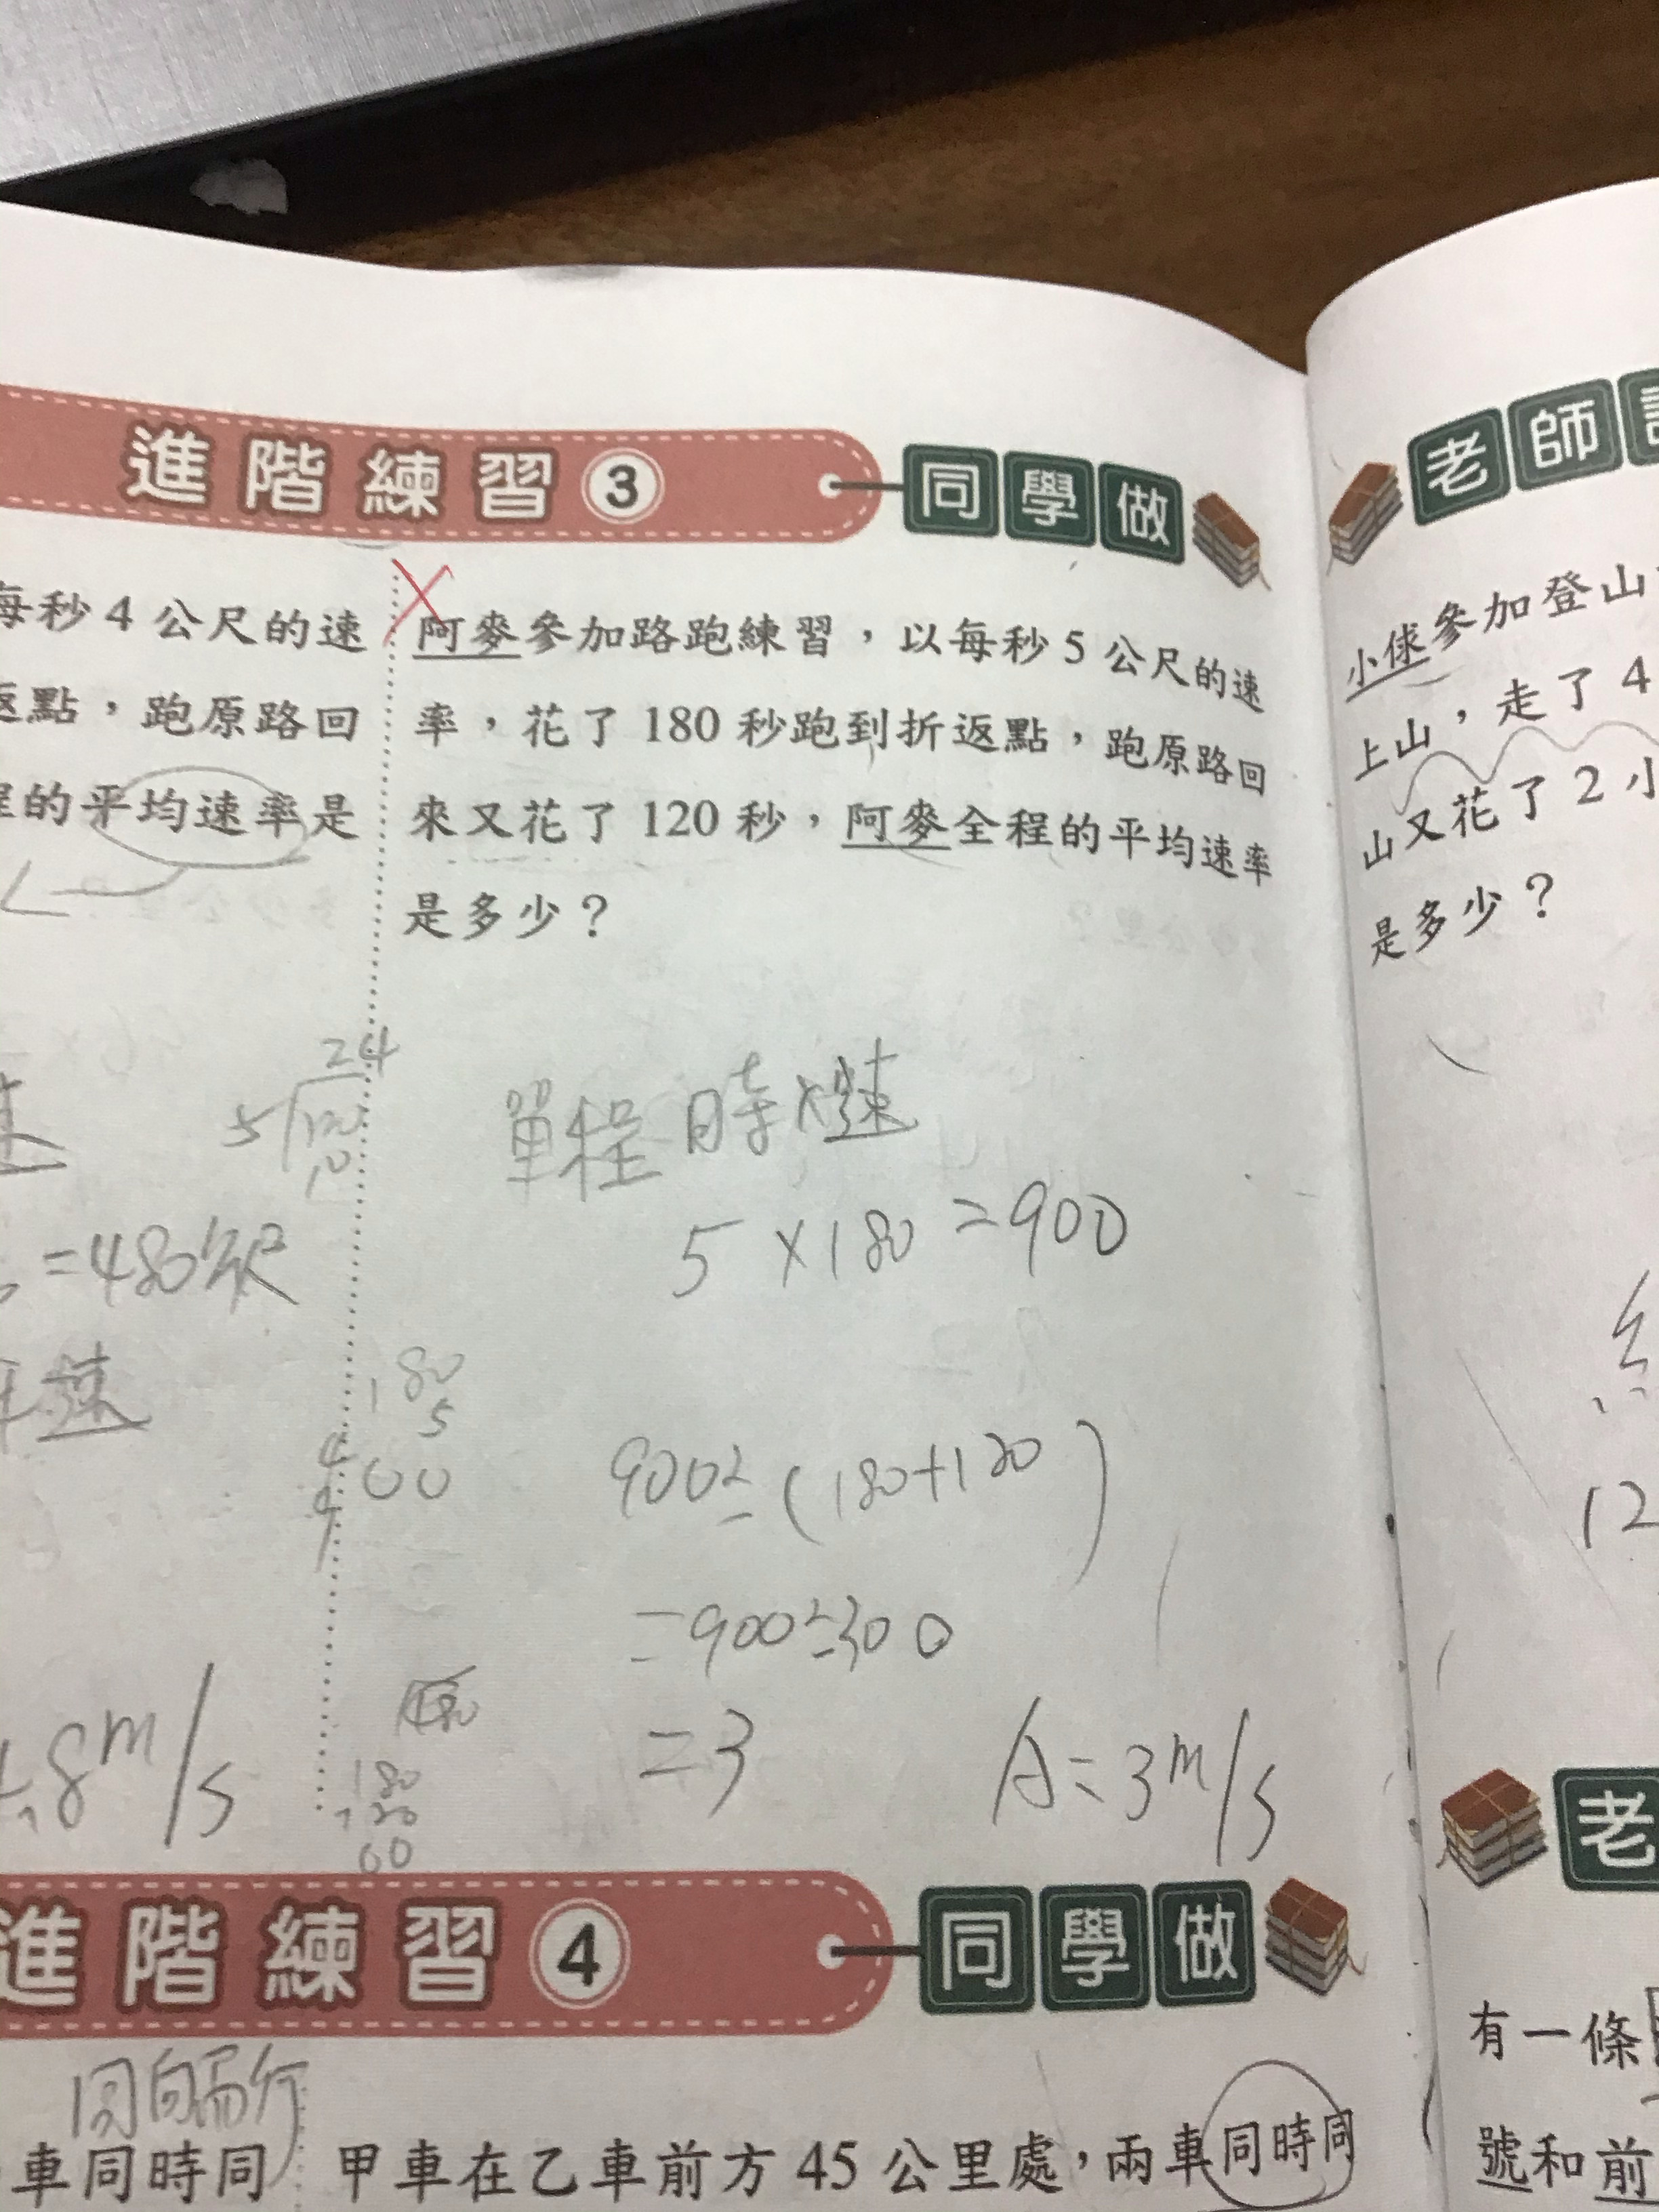 進階練習3 同學做
每秒4公尺的速
返點,跑原路回
程的平均速率是
阿麥參加路跑練習,以每秒5公尺的速
率,花了180秒跑到折返點,跑原路回
來又花了120秒,阿麥全程的平均速率
是多少?
24
5
10
速
=480公尺
速
8m/s
單程 時×速
5×180=900
180
5
4
900
900÷(180+120)
=900÷300
=3
A=3m/s
180
120
60
進階練習4 同學做
同向而行
車同時同
甲車在乙車前方45公里處,兩車同時同
老師
小俅參加登山
上山,走了4
山又花了2小
是多少?
12
老
有一條
號和前